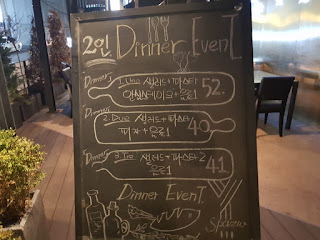 2인 Dinner EvenT
Dinner 1. Uno 샐러드+파스타
안심스테이크+음료1 52.
Dinner 2. Duo 샐러드+파스타
피자+음료1 40
Dinner 3. Trio 샐러드+파스타2
음료1 41
Dinner EvenT.